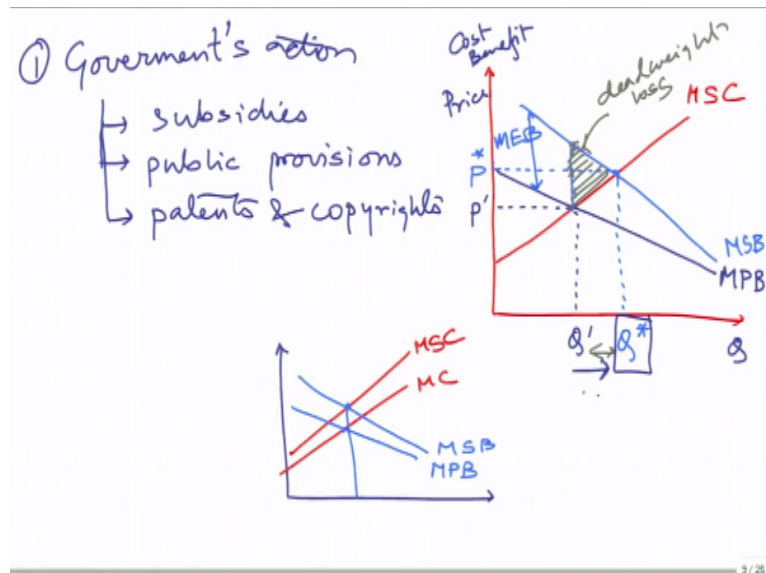 ① Goverment's action
subsidies
public provisions
patents & copyrights
Cost
Benefit
Price
deadweight
loss
MSC
MEB
P*
P'
MSB
MPB
Q'
Q*
Q
MSC
MC
MSB
MPB
9/26